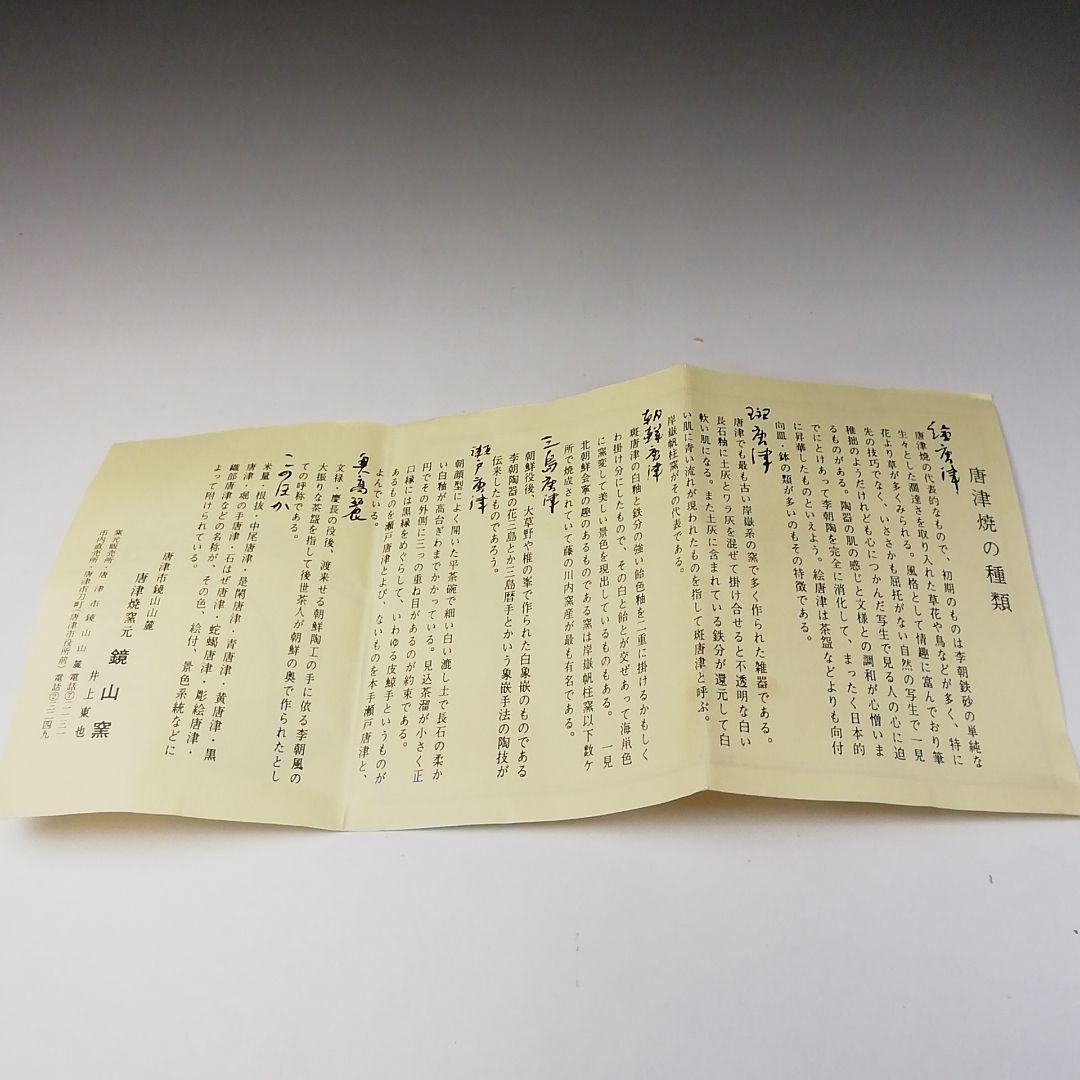 唐津焼の種類
絵唐津
唐津焼の代表的なもので、初期のものは李朝鉄砂の単純な
生々とした濶達さを取り入れた草花や鳥などが多く、特に
花より草が多くみられる。風格として情趣に富んでおり筆
先の技巧でなく、いささかも屈托がない自然の写生で一見
稚拙のようだけれども心につかんだ写生で見る人の心に迫
るものがある。陶器の肌の感じと文様との調和が心憎いま
でにとけあって李朝陶を完全に消化して、まったく日本的
に昇華したものといえよう。絵唐津は茶盌などよりも向付
向皿・鉢の類が多いのもその特徴である。
斑唐津
唐津でも最も古い岸嶽系の窯で多く作られた雑器である。
長石釉に土灰とワラ灰を混ぜて掛け合せると不透明な白い
軟い肌になる。また土灰に含まれている鉄分が還元して白
い肌に青い流れが現われたものを指して斑唐津と呼ぶ。
岸嶽帆柱窯がその代表である。
朝鮮唐津
斑唐津の白釉と鉄分の強い飴色釉を二重に掛けるかもしく
わ掛け分にしたもので、その白と飴とが交ぜあって海鼡色
に窯変して美しい景色を現出しているものもある。一見
北朝鮮会寧の趣のあるものである窯は岸嶽帆柱窯以下数ヶ
所で焼成されていて藤の川内窯産が最も有名である。
三島唐津
朝鮮役後、大草野や椎の峯で作られた白象嵌のものである
李朝陶器の花三島とか三島暦手とかいう象嵌手法の陶技が
伝来したものであろう。
瀬戸唐津
朝顔型によく開いた平茶碗で細い白い漉し土で長石の柔か
い白釉が高台ぎわまでかかっている。見込茶溜が小さく正
円でその外側に三つの重ね目があるのが約束である。
口縁には黒縁をめぐらして、いわゆる皮鯨手というものが
あるものを瀬戸唐津とよび、ないものを本手瀬戸唐津と、
よんでいる。
奥高麗
文禄・慶長の役後、渡来せる朝鮮陶工の手に依る李朝風の
大振りな茶盌を指して後世茶人が朝鮮の奥で作られたとし
ての呼称である。
このほか
米量・根抜・中尾唐津・是閑唐津・青唐津・黄唐津・黒
唐津・堀の手唐津・石はぜ唐津・蛇蝎唐津・彫絵唐津・
織部唐津などの名称が、その色、絵付、景色系統などに
よって附けられている。
唐津市鏡山山麓
唐津焼窯元 鏡山窯
井上東也
窯元販売所・唐津市鏡山山麓 電話⑦二一三一
市内直売所・唐津市刀町(唐津市役所前) 電話②三二四九